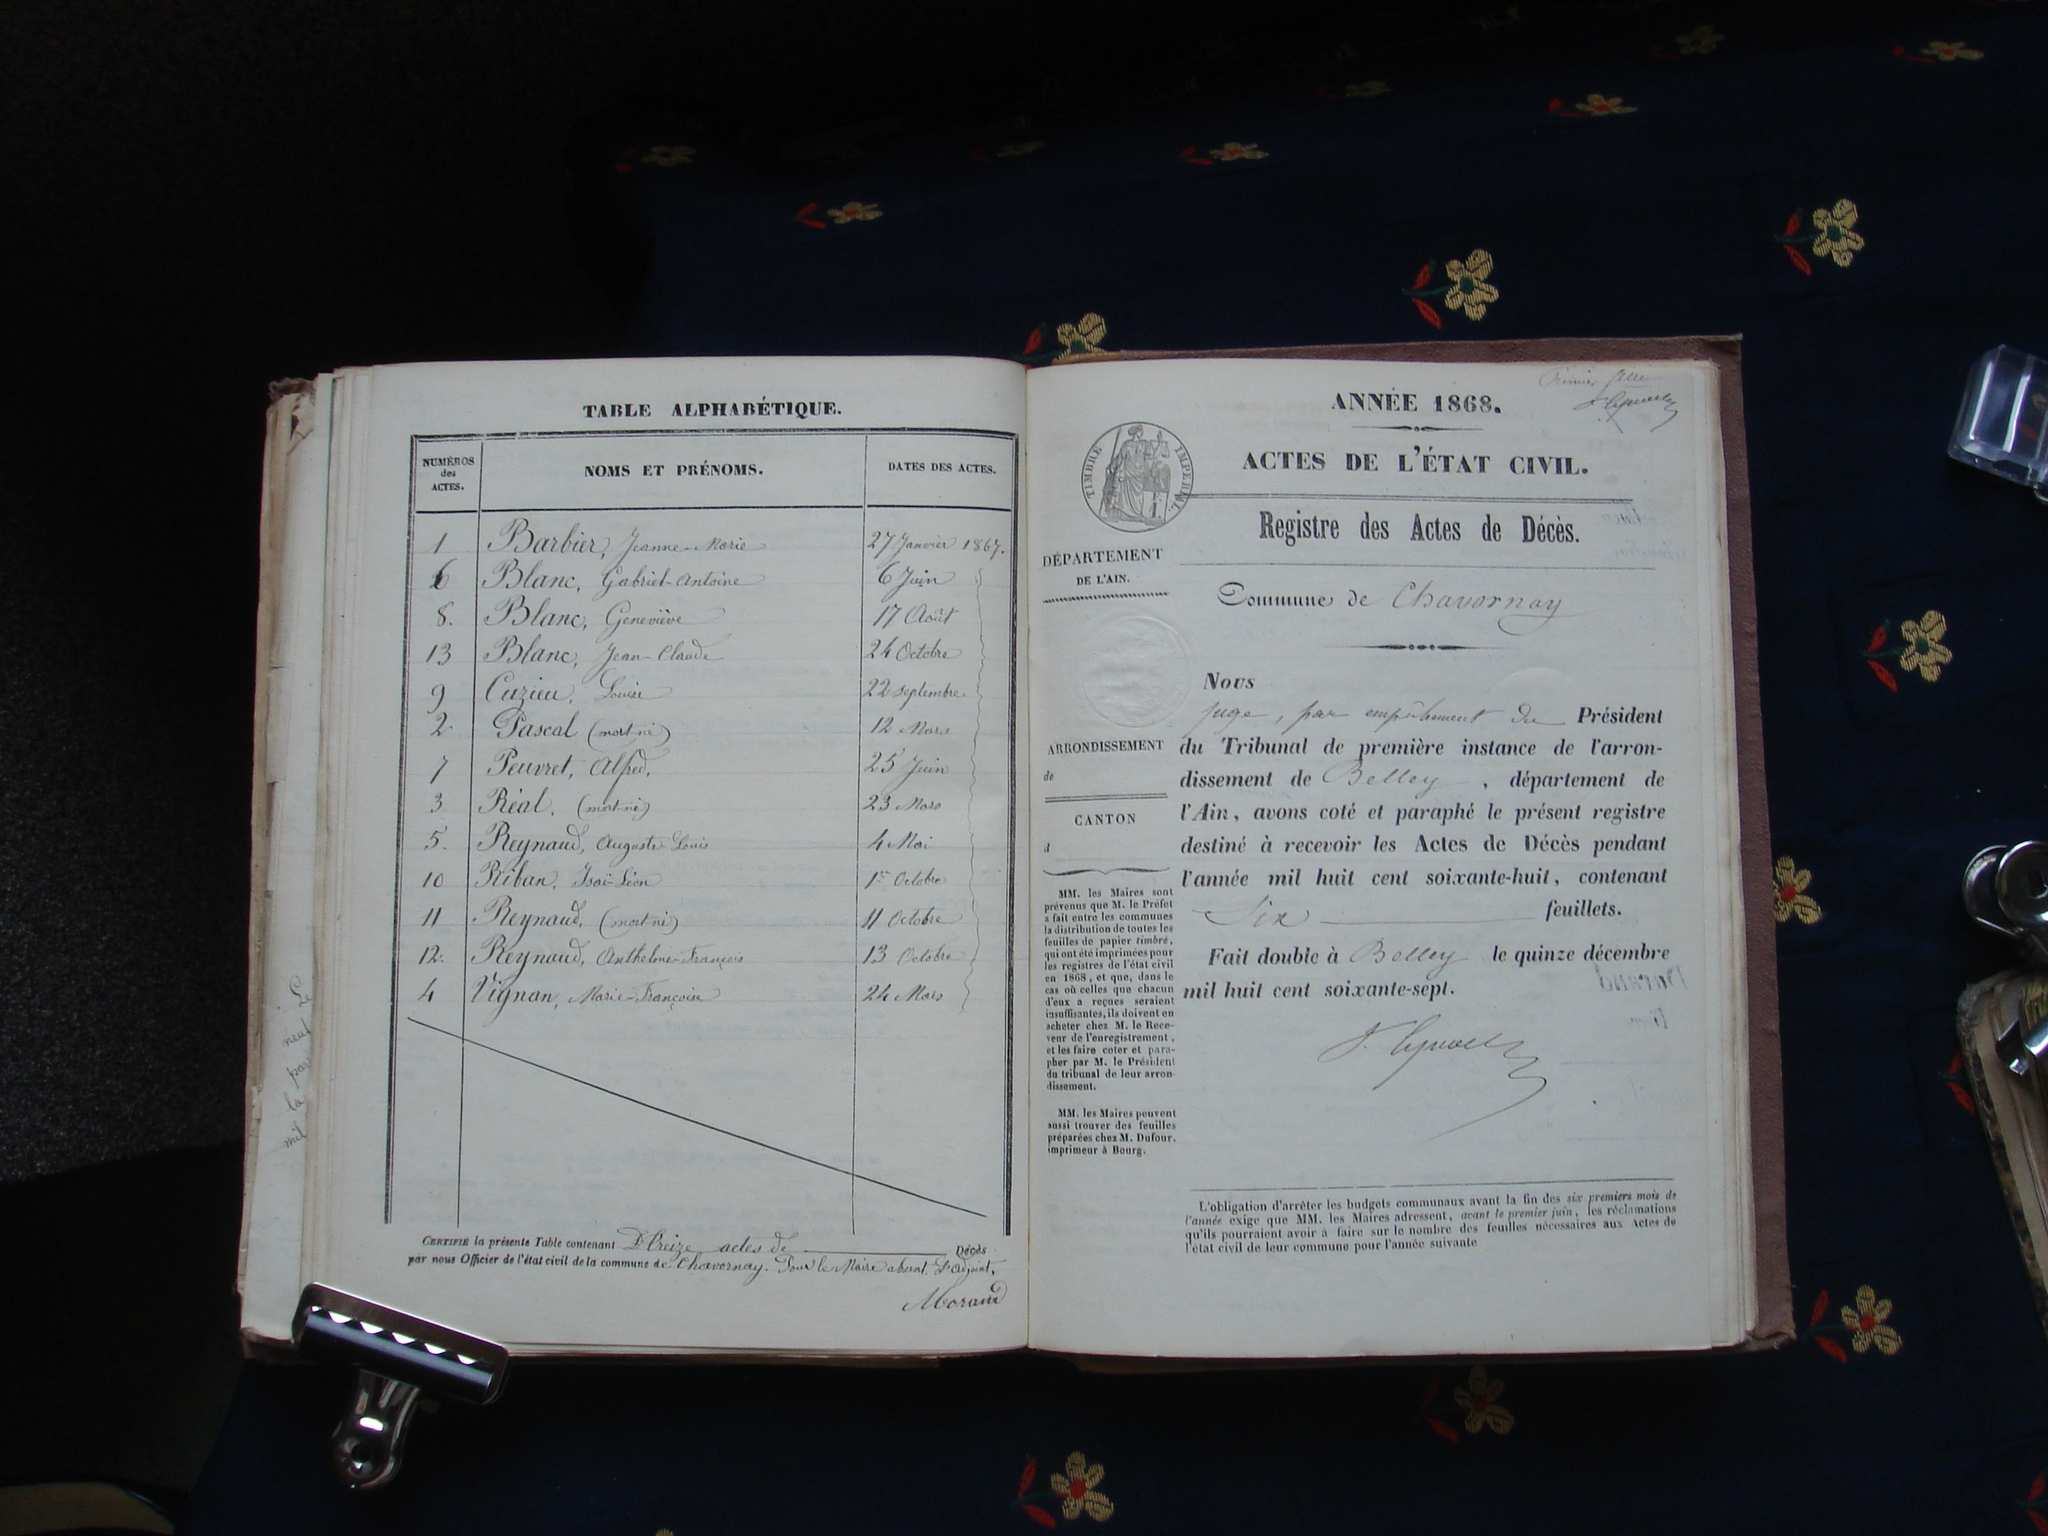 TABLE ALPHABÉTIQUE.
NUMÉROS des ACTES.
NOMS ET PRÉNOMS.
DATES DES ACTES.
1 Barbier, Jeanne-Marie 27 Janvier 1867.
6 Blanc, Gabriel-Antoine 6 Juin
8. Blanc, Geneviève 17 Août
13 Blanc, Jean-Claude 24 Octobre
9 Cuzieu, Louise 22 septembre
2 Pascal (mort-né) 12 Mars
7 Peuvret, Alfred, 25 Juin
3 Réal, (mort-né) 23 Mars
5. Reynaud, Auguste-Louis 4 Mai
10 Riban, Isaï-Léon 1er Octobre
11 Reynaud, (mort-né) 11 Octobre
12. Reynaud, Anthelme-François 13 Octobre
4 Vignan, Marie-Françoise 24 Mars
CERTIFIÉ la présente Table contenant Treize actes de Décès
par nous Officier de l'état civil de la commune de Chavornay. Pour le Maire absent, L'adjoint,
Morand
Premier
ANNÉE 1868.
ACTES DE L'ÉTAT CIVIL.
TIMBRE IMPÉRIAL.
Registre des Actes de Décès.
DÉPARTEMENT
DE L'AIN.
Commune de Chavornay
ARRONDISSEMENT
de
CANTON
d
MM. les Maires sont
prévenus que M. le Préfet
a fait entre les communes
la distribution de toutes les
feuilles de papier timbré,
qui ont été imprimées pour
les registres de l'état civil
en 1868, et que, dans le
cas où celles que chacun
d'eux a reçues seraient
insuffisantes, ils doivent en
acheter chez M. le Rece-
veur de l'enregistrement,
et les faire coter et para-
pher par M. le Président
du tribunal de leur arron-
dissement.
MM. les Maires peuvent
aussi trouver des feuilles
préparées chez M. Dufour,
imprimeur à Bourg.
Nous
juge, par empêchement du Président
du Tribunal de première instance de l'arron-
dissement de Belley, département de
l'Ain, avons coté et paraphé le présent registre
destiné à recevoir les Actes de Décès pendant
l'année mil huit cent soixante-huit, contenant
Six feuillets.
Fait double à Belley le quinze décembre
mil huit cent soixante-sept.
L'obligation d'arrêter les budgets communaux avant la fin des six premiers mois de
l'année exige que MM. les Maires adressent, avant le premier juin, les réclamations
qu'ils pourraient avoir à faire sur le nombre des feuilles nécessaires aux Actes de
l'état civil de leur commune pour l'année suivante